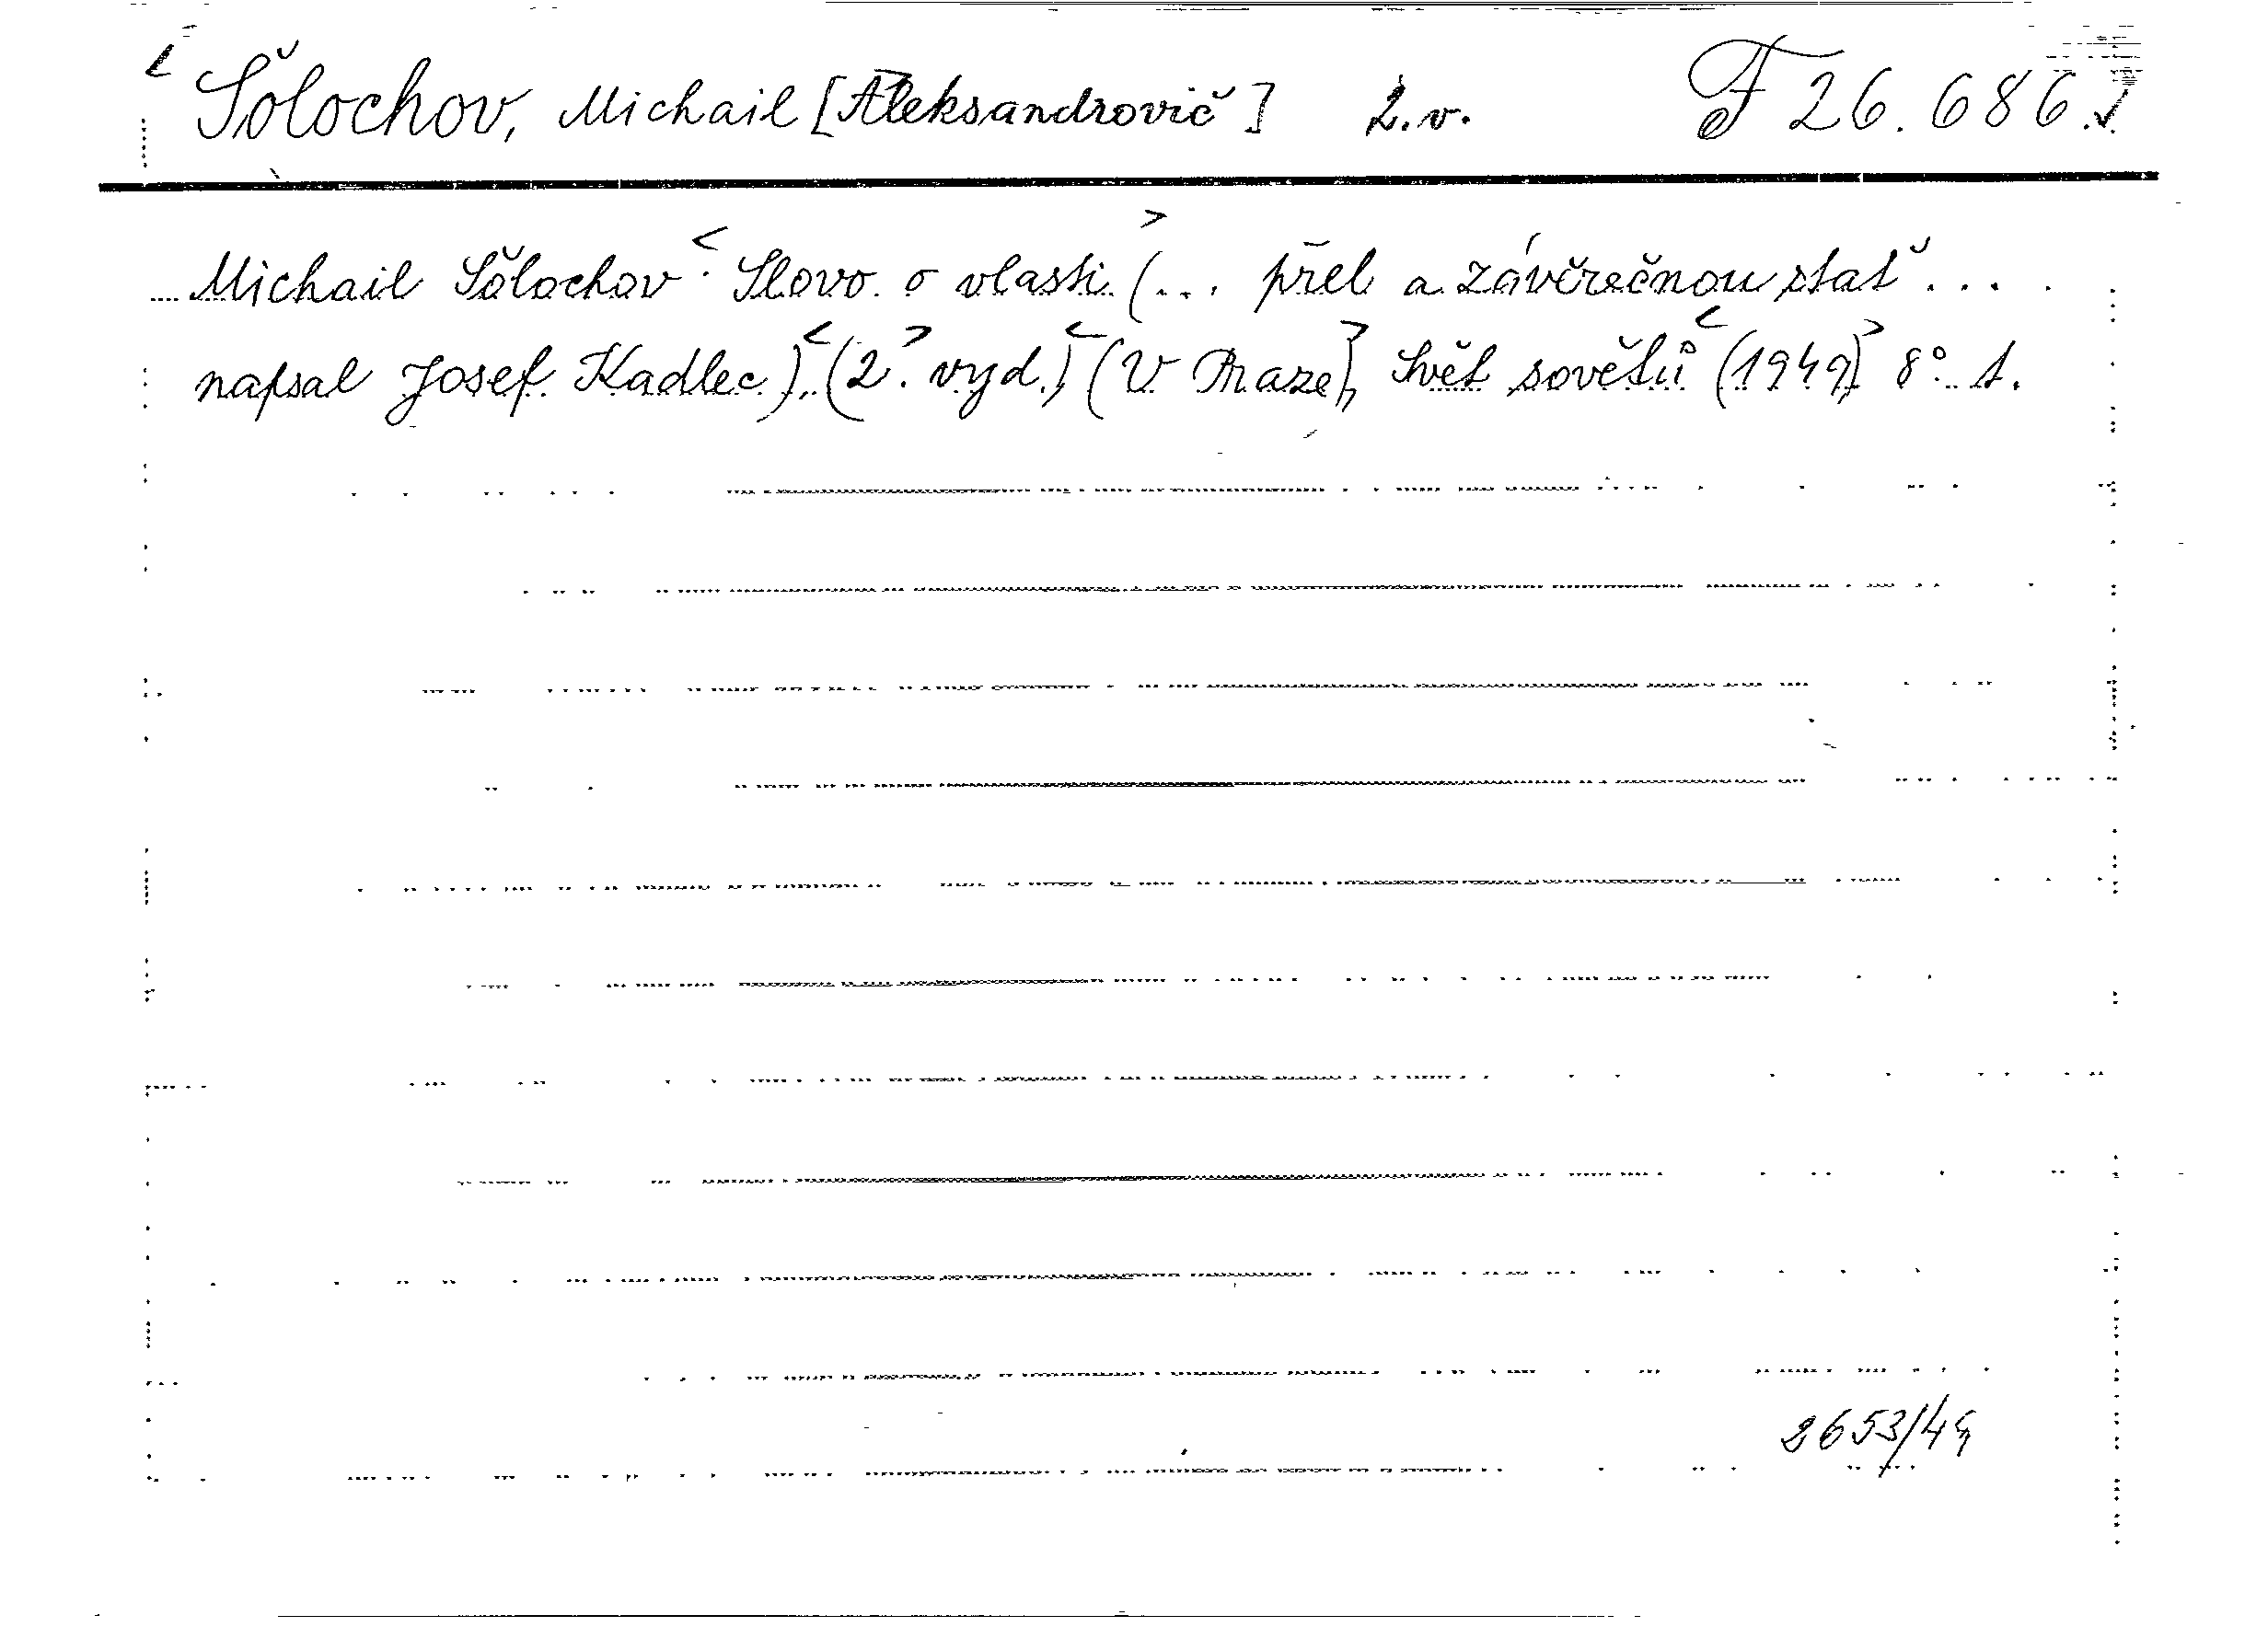 Šolochov, Michail [Aleksandrovič] 2.v. F 26.686.
Michail Šolochov: Slovo o vlasti (... přel a závěrečnou stať ...
napsal Josef Kadlec). (2. vyd.) (V Praze), Svět sovětů (1949) 8° 1.
2653/49